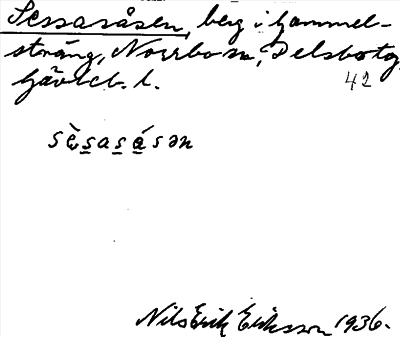 Sessasåsen, berg i Gammel-
sträng, Norrbo sn, Delsbo tg,
Gävleb. l. 42
sèsasásən
Nils Erik Eriksson 1936.